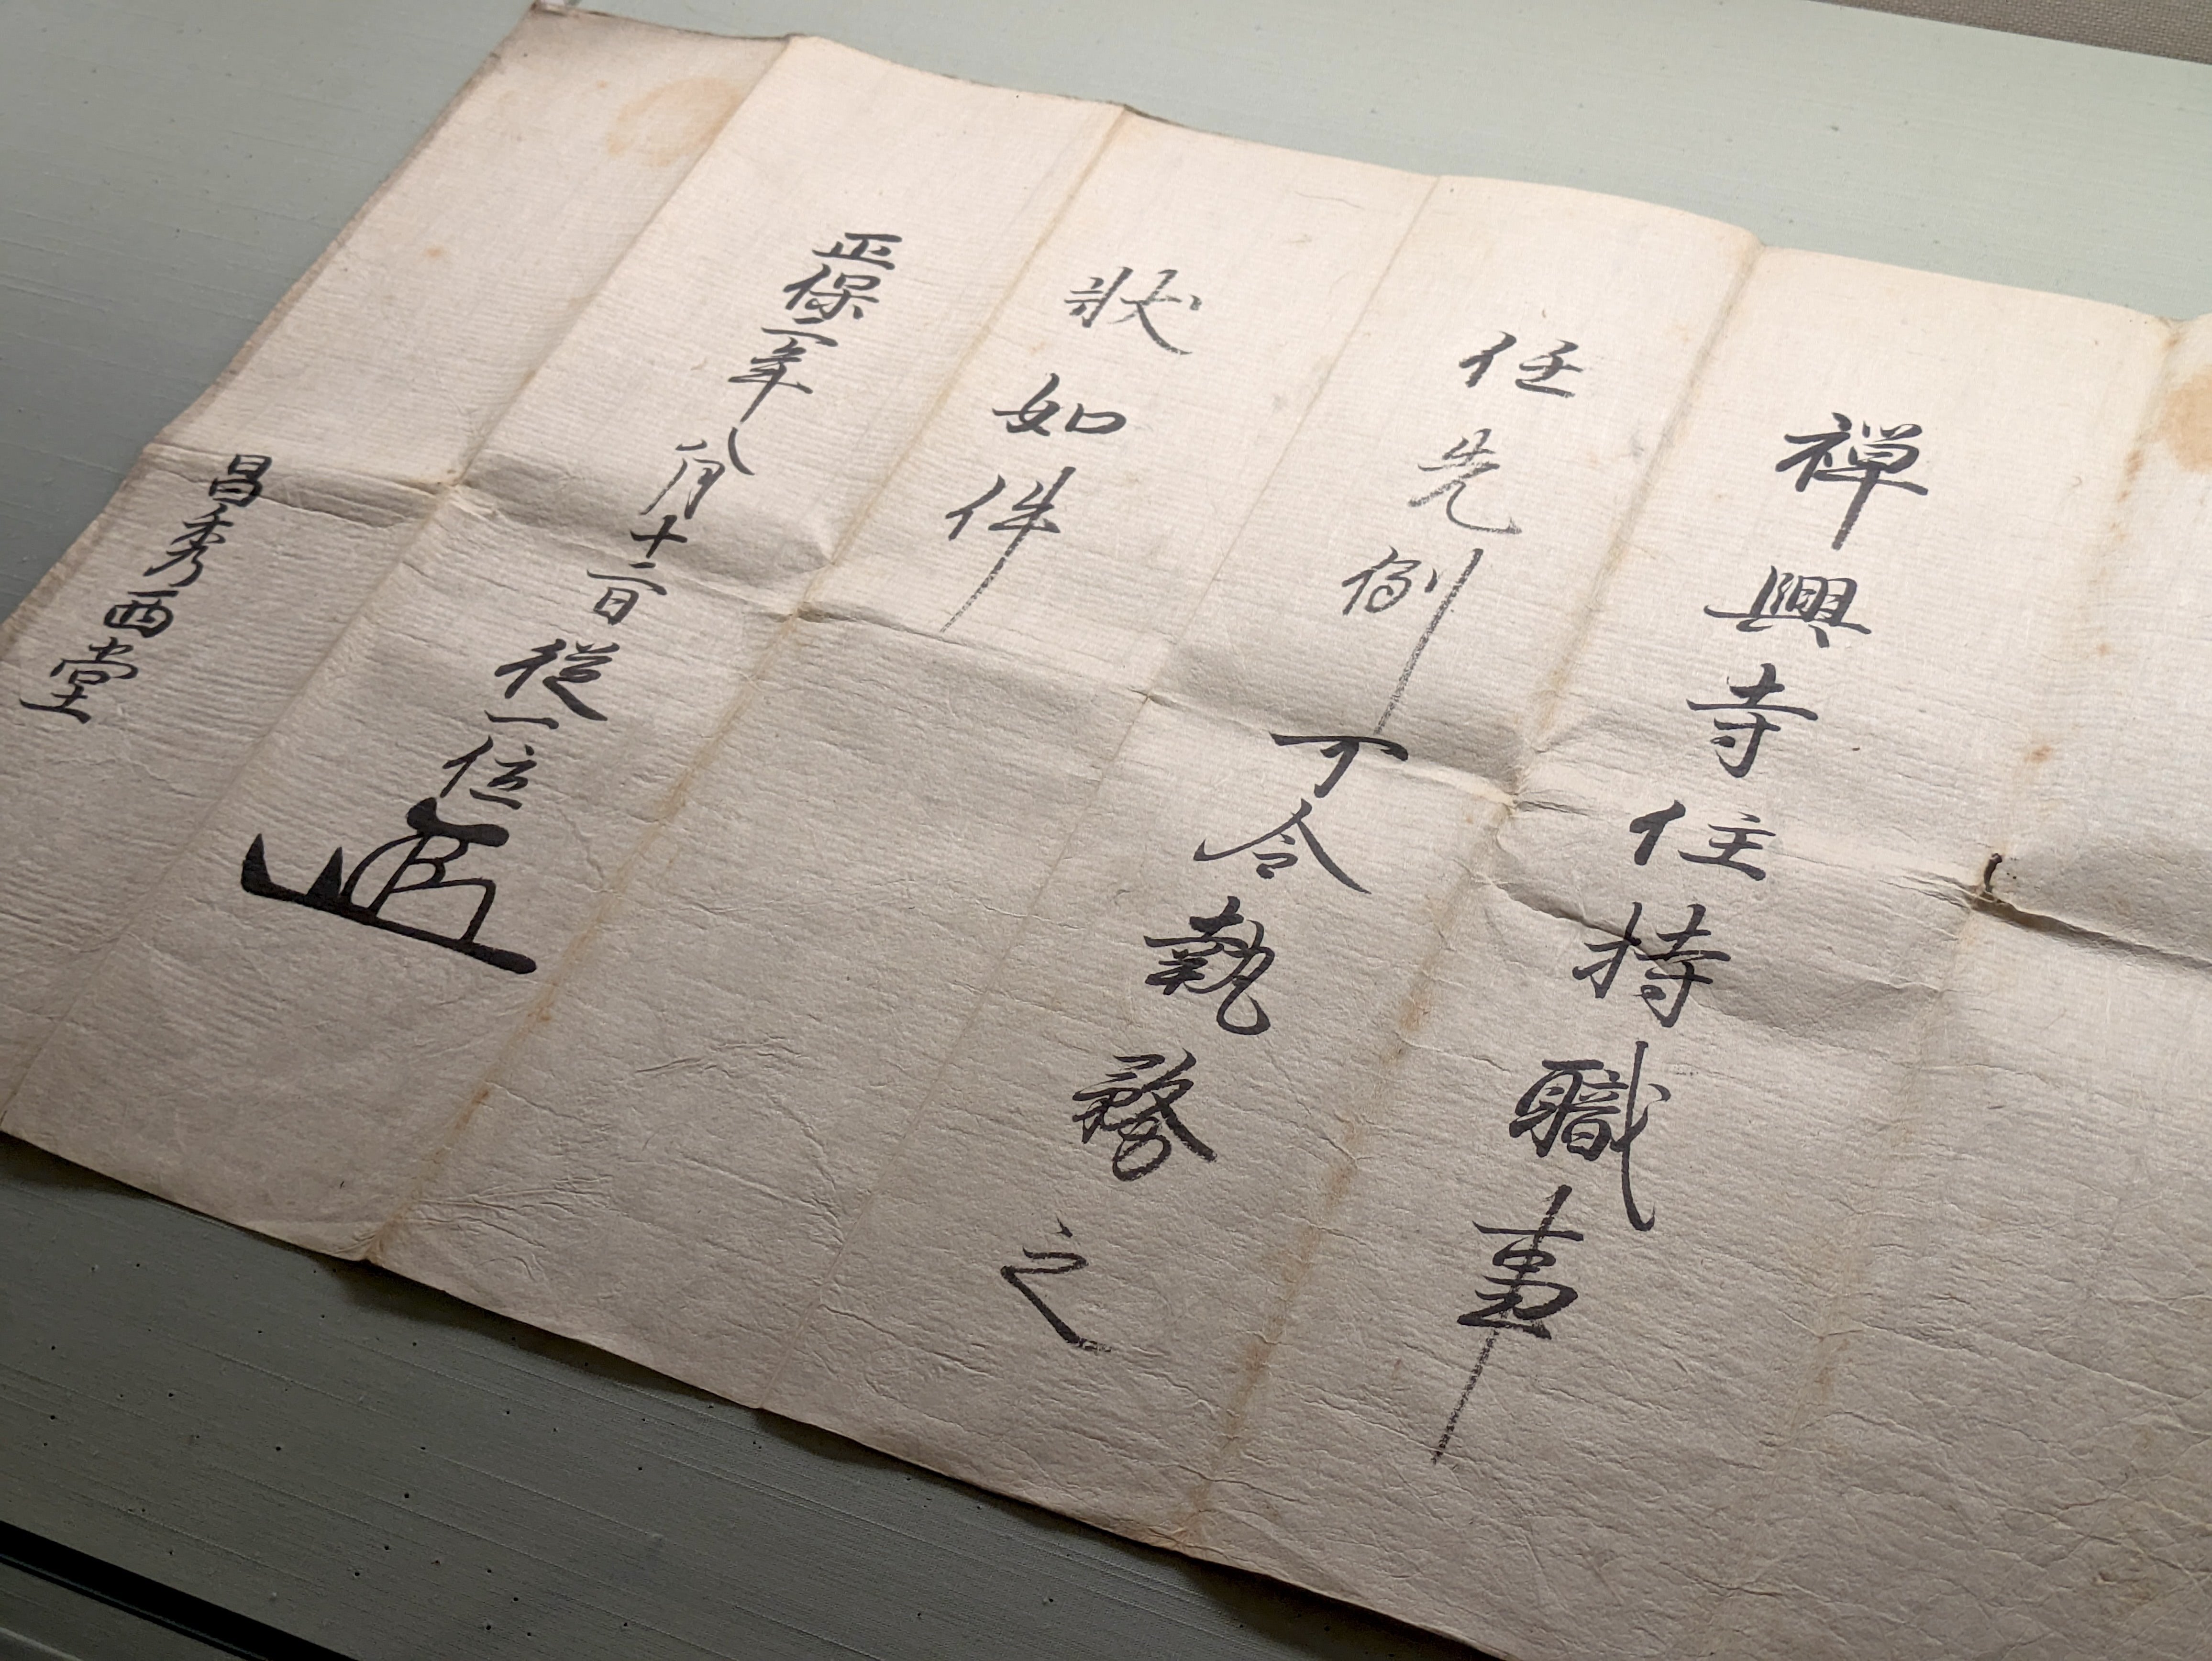 禅興寺住持職事
任先例可令執務之
状如件
正保二年八月十二日従一位
昌秀西堂